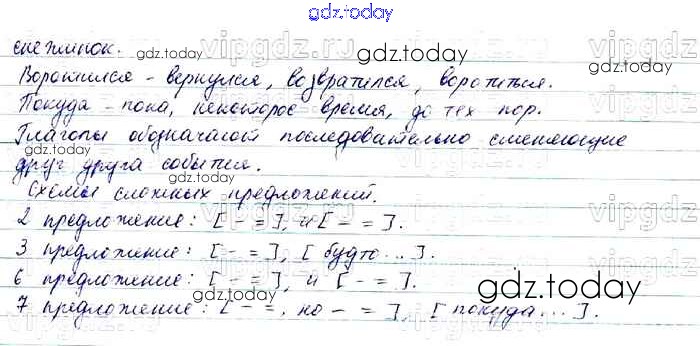 gdz.today
снежинок.
Воротился - вернулся, возвратился, воротиться.
Покуда - пока, некоторое время, до тех пор.
Глаголы обозначают последовательно сменяющие
друг друга события.
Схемы сложных предложений.
2 предложение: [ - = ], и [ - = ].
3 предложение: [ - = ], [ будто... ].
6 предложение: [ - = ], и [ - = ].
7 предложение: [ - =, но - = ], [ покуда... ].
gdz.today
gdz.today
gdz.today
gdz.today
gdz.today
gdz.today
vipgdz.ru
vipgdz
vipgdz
vipgdz